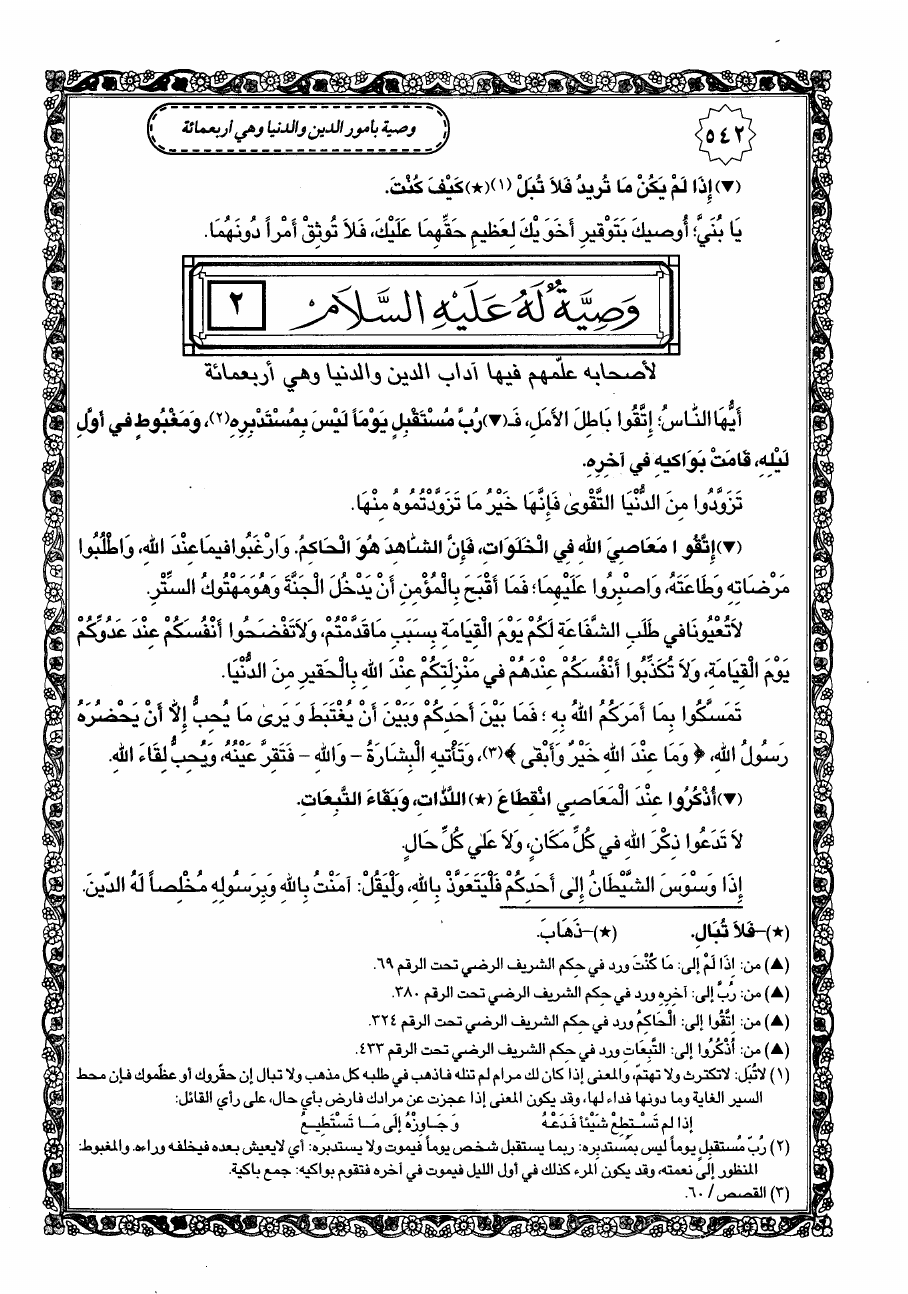 ٥٤٢
وصية بأمور الدين والدنيا وهي أربعمائة
(▼) إِذَا لَمْ يَكُنْ مَا تُرِيدُ فَلاَ تُبَلْ (١)(★) كَيْفَ كُنْتَ.
يَا بُنَيَّ؛ أُوصِيكَ بَتَوْقِيرِ أَخَوَيْكَ لِعَظِيمِ حَقِّهِمَا عَلَيْكَ، فَلاَ تُوثِقْ أَمْراً دُونَهُمَا.
وَصِيَّةٌ لَهُ عَلَيْهِ السَّلَامُ
٢
لأصحابه علّمهم فيها آداب الدين والدنيا وهي أربعمائة
أَيُّهَا النَّاسُ؛ اِتَّقُوا بَاطِلَ الأَمَلِ، فَـ(▼) رُبَّ مُسْتَقْبِلٍ يَوْمَاً لَيْسَ بِمُسْتَدْبِرِهِ(٢)، وَمَغْبُوطٍ في أَوَّلِ
لَيْلِهِ، قَامَتْ بَوَاكيهِ في آخِرِهِ.
تَزَوَّدُوا مِنَ الدُّنْيَا التَّقْوىٰ فَإِنَّهَا خَيْرُ مَا تَزَوَّدْتُمُوهُ مِنْهَا.
(▼) إِتَّقُو ا مَعَاصِيَ اللهِ فِي الْخَلَوَاتِ، فَإِنَّ الشَّاهِدَ هُوَ الْحَاكِمُ. وَارْغَبُوا فيمَا عِنْدَ اللهِ، وَاطْلُبُوا
مَرْضَاتِهِ وَطَاعَتَهُ، وَاصْبِرُوا عَلَيْهِمَا؛ فَمَا أَقْبَحَ بِالْمُؤْمِنِ أَنْ يَدْخُلَ الْجَنَّةَ وَهُوَ مَهْتُوكُ السِّتْرِ.
لاَ تُعْيُونَا في طَلَبِ الشَّفَاعَةِ لَكُمْ يَوْمَ الْقِيَامَةِ بِسَبَبِ مَا قَدَّمْتُمْ، وَلاَ تَفْضَحُوا أَنْفُسَكُمْ عِنْدَ عَدُوِّكُمْ
يَوْمَ الْقِيَامَةِ، وَلاَ تُكَذِّبُوا أَنْفُسَكُمْ عِنْدَهُمْ في مَنْزِلَتِكُمْ عِنْدَ اللهِ بِالْحَقيرِ مِنَ الدُّنْيَا.
تَمَسَّكُوا بِمَا أَمَرَكُمُ اللهُ بِهِ؛ فَمَا بَيْنَ أَحَدِكُمْ وَبَيْنَ أَنْ يُغْتَبَطَ وَ يَرىٰ مَا يُحِبُّ إِلاَّ أَنْ يَحْضُرَهُ
رَسُولُ اللهِ، ﴿ وَمَا عِنْدَ اللهِ خَيْرٌ وَأَبْقى ﴾(٣)، وَتَأْتيهِ الْبِشَارَةُ - وَاللهِ - فَتَقِرَّ عَيْنُهُ، وَيُحِبُّ لِقَاءَ اللهِ.
(▼) أُذْكُرُوا عِنْدَ الْمَعَاصي انْقِطَاعَ (★) اللَّذَّاتِ، وَبَقَاءَ التَّبِعَاتِ.
لاَ تَدَعُوا ذِكْرَ اللهِ في كُلِّ مَكَانٍ، وَلاَ عَلٰى كُلِّ حَالٍ.
إِذَا وَسْوَسَ الشَّيْطَانُ إِلٰى أَحَدِكُمْ فَلْيَتَعَوَّذْ بِاللهِ، وَلْيَقُلْ: آمَنْتُ بِاللهِ وَبِرَسُولِهِ مُخْلِصاً لَهُ الدّينَ.
(★)-فَلاَ تُبَالِ. (★)-ذَهَابَ.
(▲) من: إِذَا لَمْ إلى: مَا كُنْتَ ورد في حِكم الشريف الرضي تحت الرقم ٦٩.
(▲) من: رُبَّ إلى: آخِرِهِ ورد في حِكم الشريف الرضي تحت الرقم ٣٨٠.
(▲) من: إِتَّقُوا إلى: الْحَاكِمُ ورد في حِكم الشريف الرضي تحت الرقم ٣٢٤.
(▲) من: أُذْكُرُوا إلى: التَّبِعَاتِ ورد في حِكم الشريف الرضي تحت الرقم ٤٣٣.
(١) لاتُبَل: لاتكترث ولا تهتمّ، والمعنى إذا كان لك مرام لم تنله فاذهب في طلبه كل مذهب ولا تبال إن حقّروك أو عظّموك فإن محط
السير الغاية وما دونها فداء لها، وقد يكون المعنى إذا عجزت عن مرادك فارض بأي حال، على رأي القائل:
إذا لم تَسْتطِعْ شَيْئاً فَدَعْهُ وَجَاوِزْهُ إلَى مَا تَسْتَطِيعُ
(٢) رُبَّ مُستقبِلٍ يوماً ليس بمُستدبِره: ربما يستقبل شخص يوماً فيموت ولا يستدبره: أي لايعيش بعده فيخلفه وراءه. والمغبوط:
المنظور إلى نعمته، وقد يكون المرء كذلك في أول الليل فيموت في آخره فتقوم بواكيه: جمع باكية.
(٣) القصص / ٦٠.